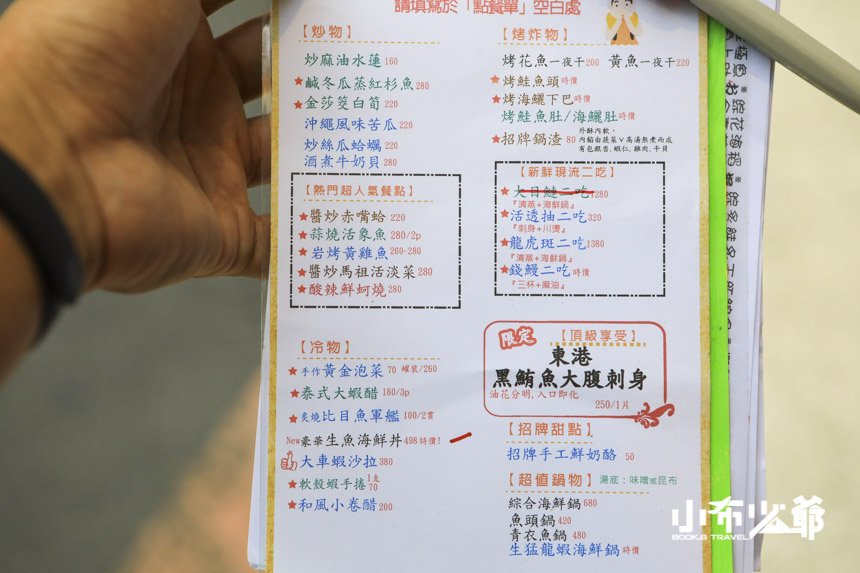 請填寫於「點餐單」空白處
【炒物】
炒麻油水蓮 160
★鹹冬瓜蒸紅杉魚 280
★金莎筊白筍 220
沖繩風味苦瓜 220
炒絲瓜蛤蠣 220
酒煮牛奶貝 280
【熱門超人氣餐點】
★醬炒赤嘴蛤 220
★蒜燒活象魚 280/2p
★岩烤黃雞魚 260-280
★醬炒馬祖活淡菜 280
★酸辣鮮蚵燒 280
【冷物】
★手作黃金泡菜 70 罐裝/260
★泰式大蝦醋 180/3p
★炙燒比目魚軍艦 100/2貫
New豪華生魚海鮮丼 498特價!
大車蝦沙拉 380
★軟殼蝦手捲 1支70
★和風小卷醋 200
【烤炸物】
烤花魚一夜干200 黃魚一夜干220
★烤鮭魚頭 時價
★烤海鱺下巴 時價
烤鮭魚肚/海鱺肚 時價
★招牌鍋渣 80 外酥內軟,
內餡由蔬菜∨高湯熬煮而成
有包銀杏,蝦仁,雞肉,干貝
【新鮮現流二吃】
★大目鰱二吃 280
『清蒸+海鮮鍋』
★活透抽二吃 320
『刺身+川燙』
★龍虎斑二吃 1380
『清蒸+海鮮鍋』
★錢鰻二吃 時價
『三杯+麻油』
限定
【頂級享受】
東港
黑鮪魚大腹刺身
油花分明,入口即化
250/1片
【招牌甜點】
招牌手工鮮奶酪 50
【超值鍋物】 湯底:味噌或昆布
綜合海鮮鍋 680
魚頭鍋 420
青衣魚鍋 480
生猛龍蝦海鮮鍋 時價
小布少爺
BOOK.B TRAVEL